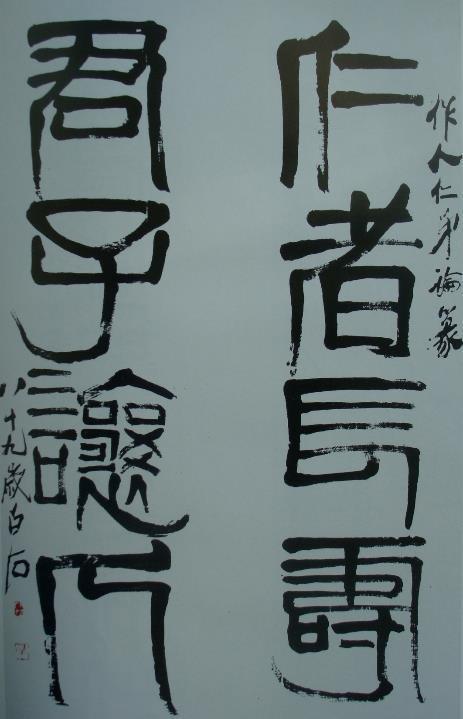 作人仁弟論篆
仁者長壽
君子讓人
八十九歲白石